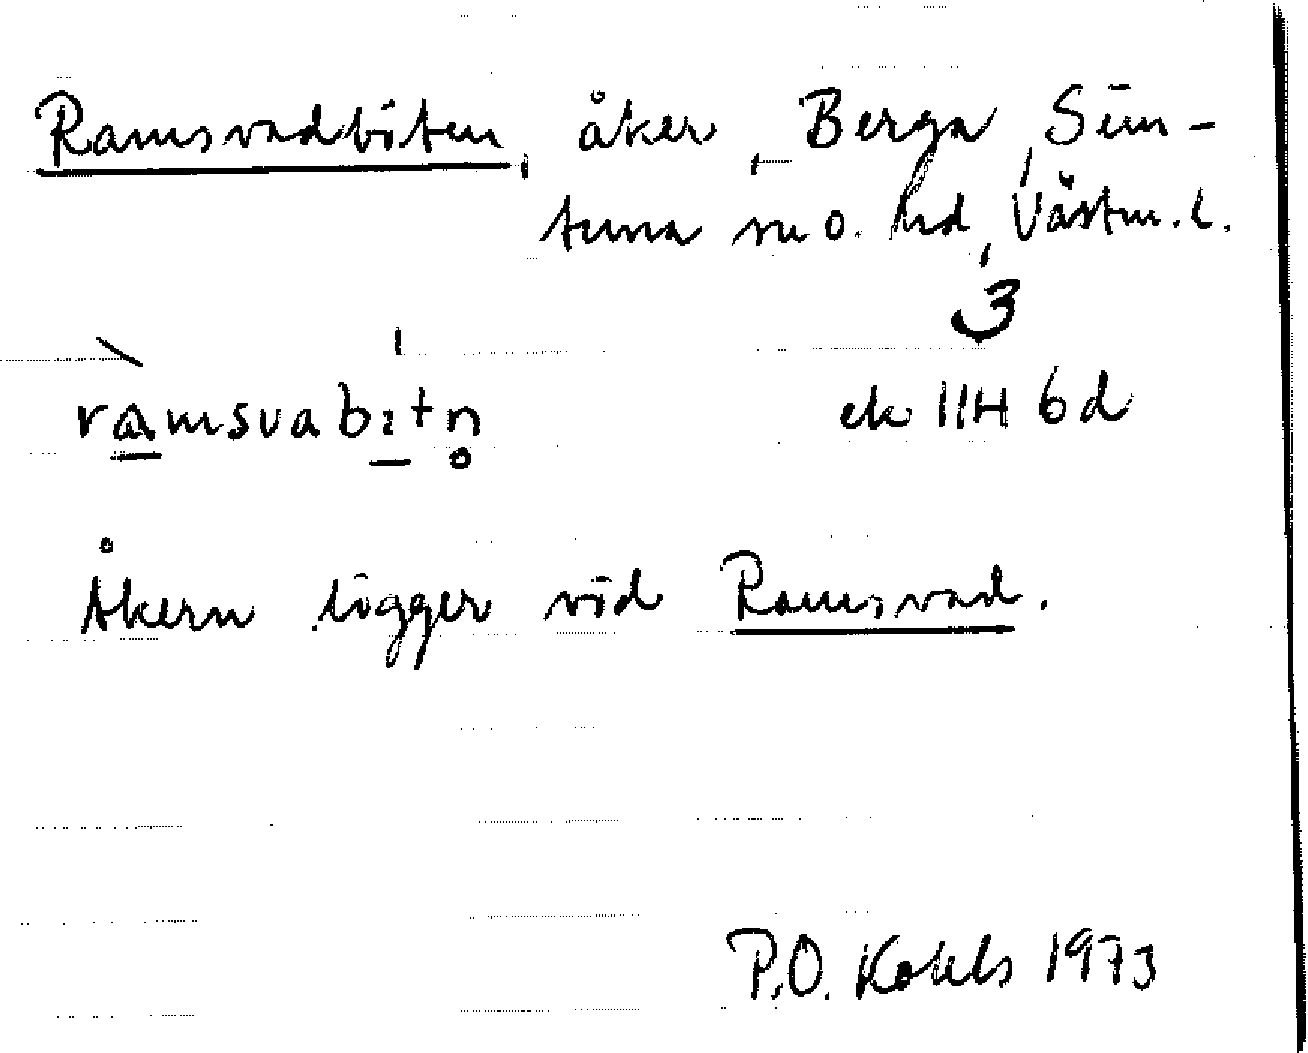 Ramsvadbiten, åker, Berga, Sim-
tuna sn o. hd, Västm. l.
3
ramsvabi:tn ek 11H 6d
Åkern ligger vid Ramsvad.
P.O. Kohls 1973